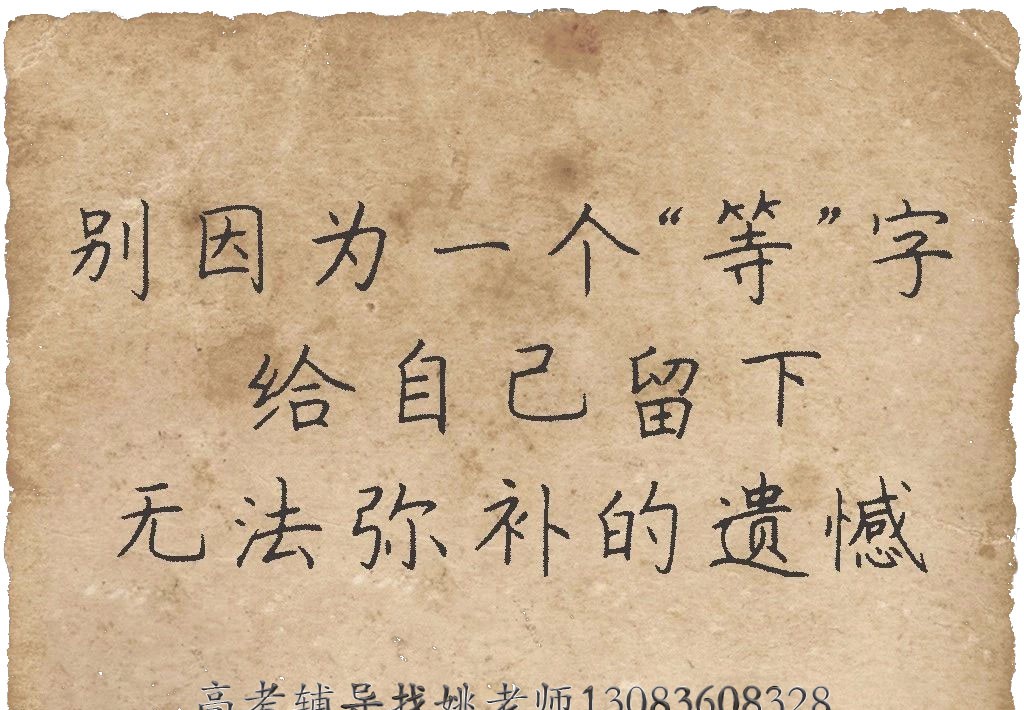 别因为一个“等”字
给自己留下
无法弥补的遗憾
高考辅导找姚老师13083608328